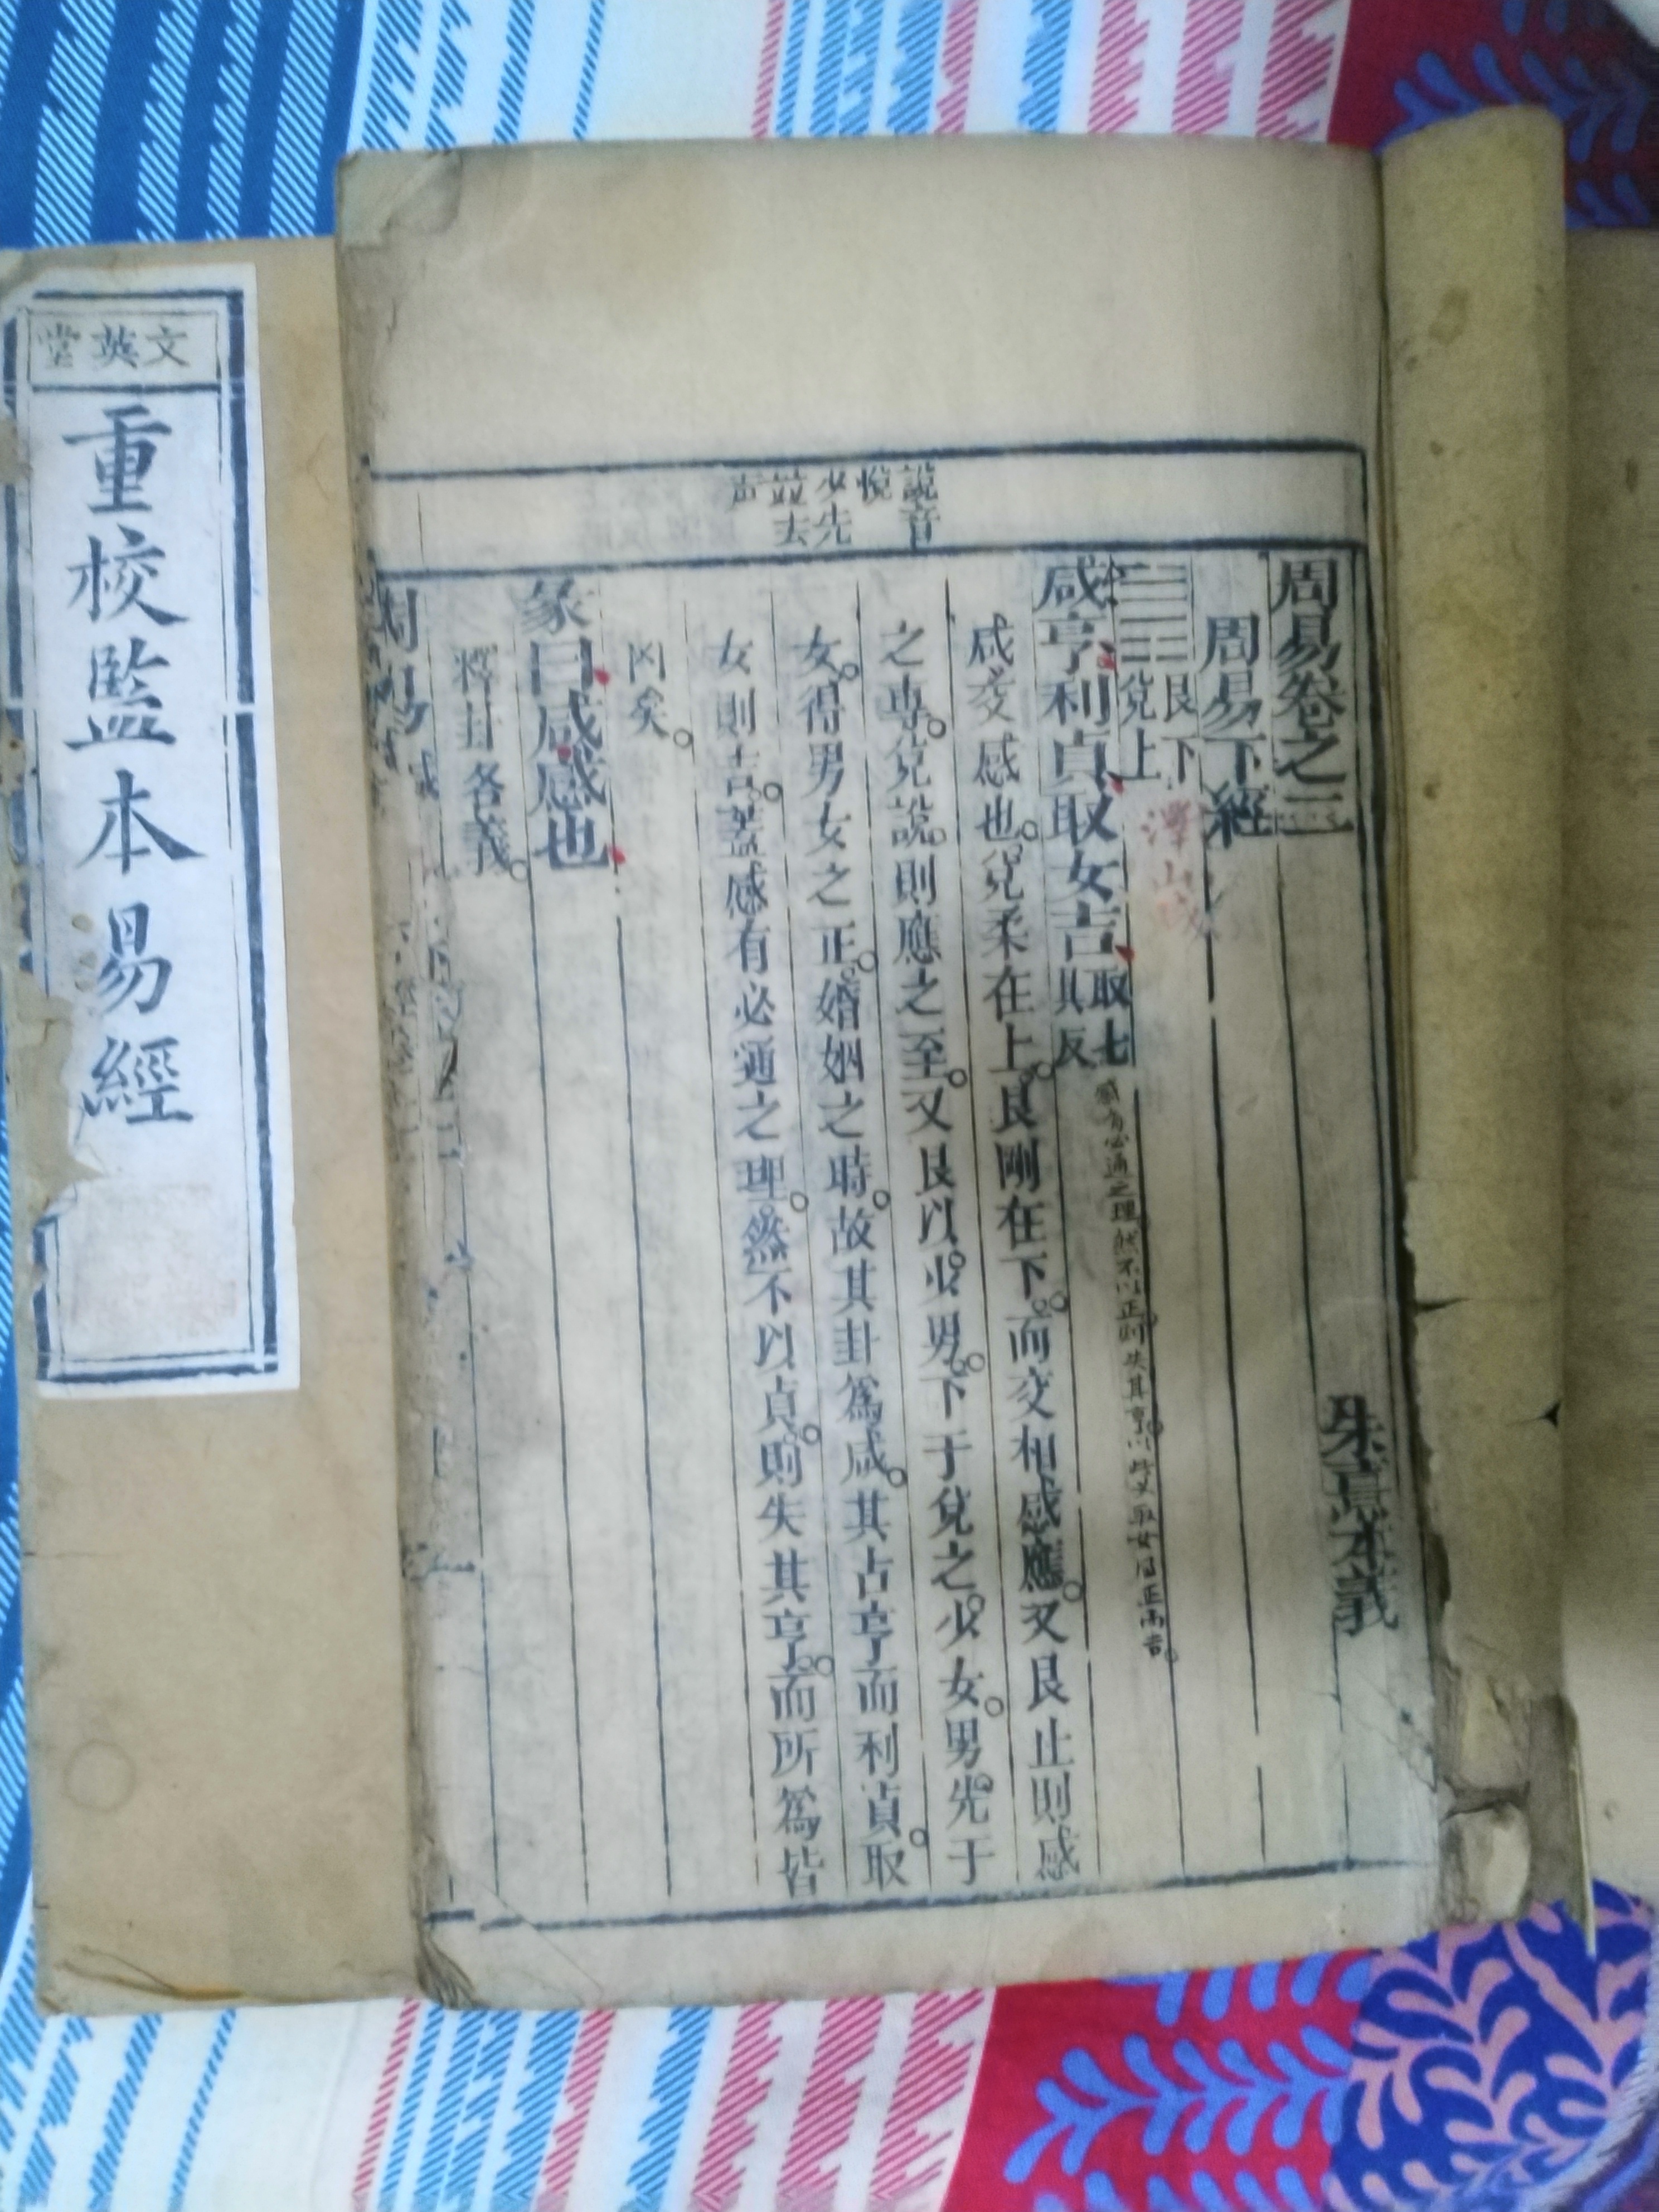 文英堂
重校監本易經
說音
悅
少先
並去
声
周易卷之二
朱熹本義
周易下經
艮下
兌上
澤山咸
咸亨利貞取女吉
取七
具反
感有必通之理然不以正則失其亨
取女
正而吉
咸交感也兌柔在上艮剛在下而交相感應又艮止則感
之專兌說則應之至又艮以少男下于兌之少女男先于
女得男女之正婚姻之時故其卦為咸其占亨而利貞取
女則吉蓋感有必通之理然不以貞則失其亨而所為皆
凶矣
彖曰咸感也
釋卦名義
周易